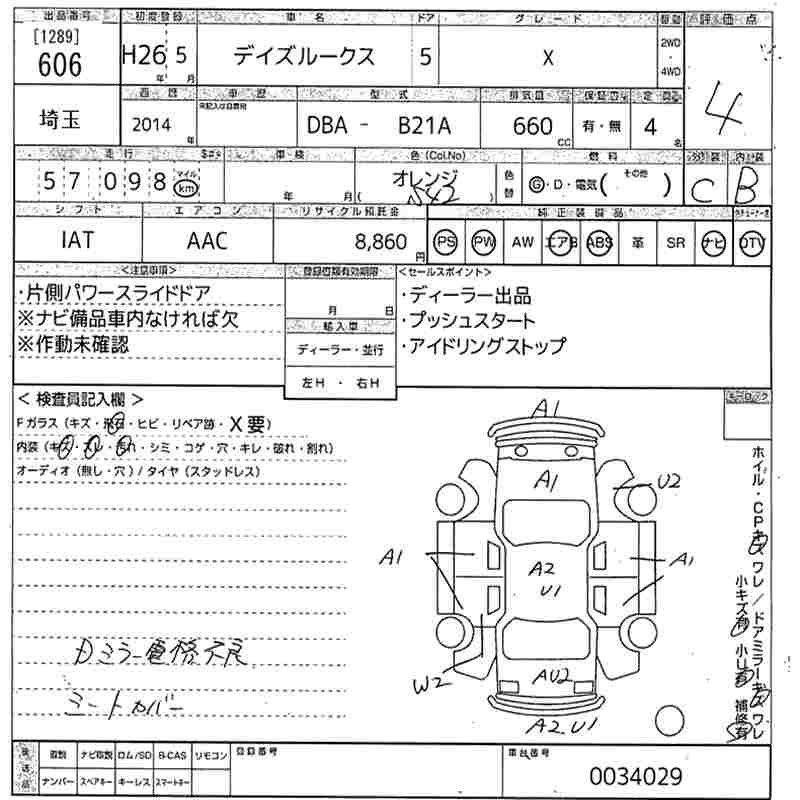 出品番号 初度登録 車名 ドア グレード 駆動 評価点
[1289]
606 H26 年 5 月 デイズルークス 5 X 2WD 4WD 4
西暦 車歴 型式 排気量 定員
未記入は自家用
埼玉 2014 年 DBA - B21A 660 CC 有・無 4 名
走行 車検 色(Col.No) 燃料 外装 内装
57098 マイル km 年 月 オレンジ ( 542 ) 色替 G・D・電気( その他 ) C B
シフト エアコン リサイクル預託金 純正装備品
IAT AAC 8,860 円 PS PW AW エアB ABS 革 SR ナビ DTV
<注意事項> 登録書類有効期限 <セールスポイント>
・片側パワースライドドア 月 日 ・ディーラー出品
※ナビ備品車内なければ欠 輸入車 ・プッシュスタート
※作動未確認 ディーラー・並行 ・アイドリングストップ
左H ・ 右H
<検査員記入欄> キーロック
Fガラス(キズ・飛石・ヒビ・リペア跡・X要)
内装(キズ・スレ・汚れ・シミ・コゲ・穴・キレ・破れ・割れ)
オーディオ(無し・穴)/タイヤ(スタッドレス)
A1
A1
U2
A1
A1
A2
U1
W2
AU2
A2.U1
ホイル・CPキズ ワレ/ドアミラーキズ ワレ
小キズ有 小U有 補修有
ミラー電格不良
シートカバー
後送品 取説 ナビ取説 ロム/SD B-CAS リモコン 登録番号 車台番号
ナンバー スペアキー キーレス スマートキー 0034029